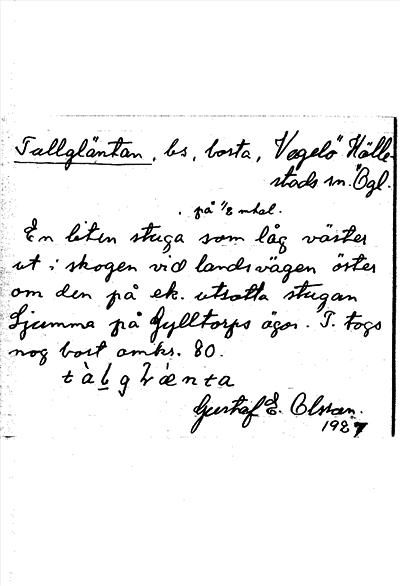 Tallgläntan, bs, borta, Vegelö Hälle-
stads sn. Ögl.
på 1/8 mtal.
En liten stuga som låg väster
ut i skogen vid landsvägen öster
om den på ek. utsatta stugan
Ljumma på Gylltorps ägor. T. togs
nog bort omkr. 80.
tàlglæ̀nta
Gustaf E. Olsson.
1927